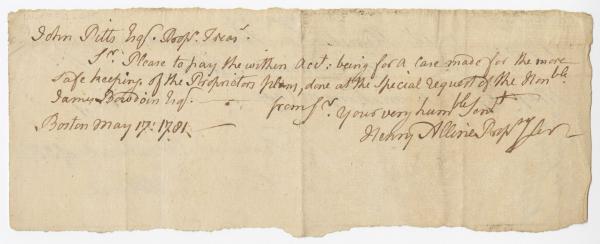 John Pitts Esqr. Propr. Treasr.
Sr. Please to pay the within Acct: being for a case made for the more
safe keeping of the Proprietors plans, done at the special request of the Honble.
James Bowdoin Esqr. — from Sr. Your very humble Servt
Boston May 17: 1781. Henry Alline Propry Cler